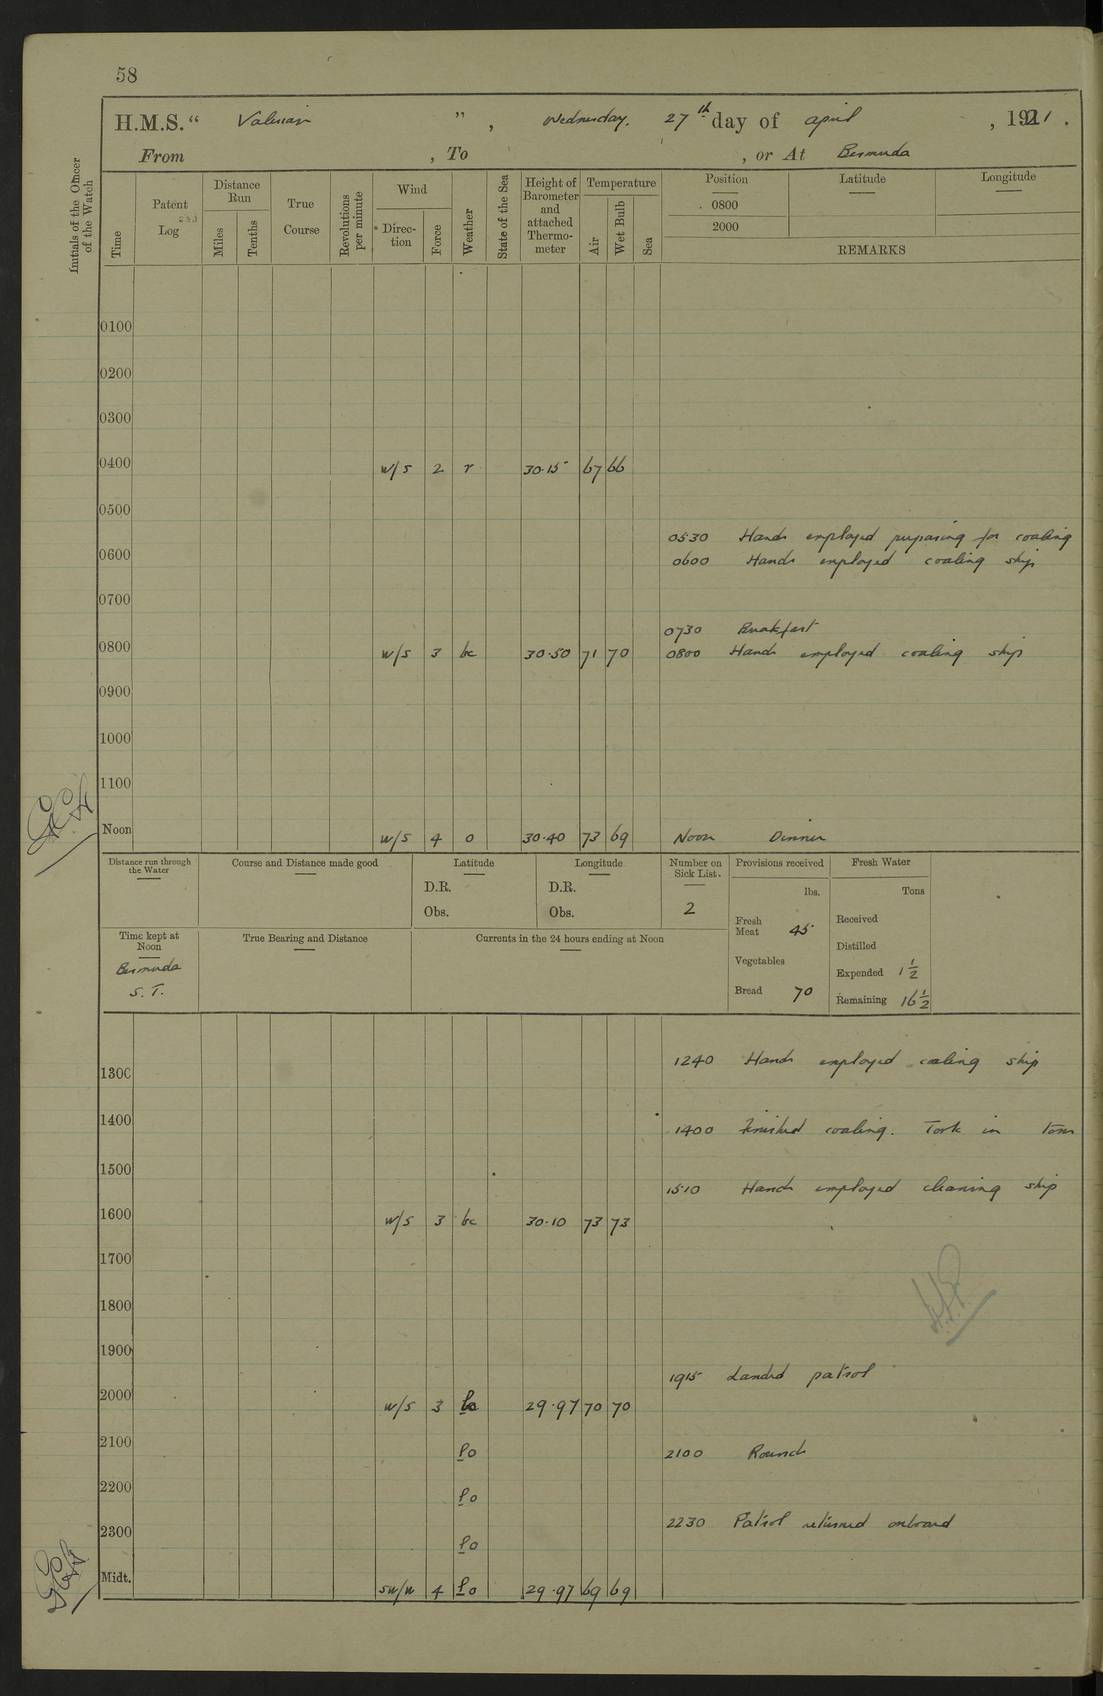 58
H.M.S. “ Valerian ” , Wednesday. 27th day of april , 1921 .
From , To , or At Bermuda
Initials of the Officer of the Watch
Time
Patent Log
Distance Run
Miles
Tenths
True Course
Revolutions per minute
Wind
Direc- tion
Force
Weather
State of the Sea
Height of Barometer and attached Thermo- meter
Temperature
Air
Wet Bulb
Sea
Position
Latitude
Longitude
0800
2000
REMARKS
0100
0200
0300
0400 W/S 2 r 30.15 67 66
0500
0530 Hands employed preparing for coaling
0600
0600 Hands employed coaling ship
0700
0730 Breakfast
0800 W/S 3 bc 30.50 71 70 0800 Hands employed coaling ship
0900
1000
1100
Noon W/S 4 o 30.40 73 69 Noon Dinner
Distance run through the Water
Course and Distance made good
Latitude
D.R.
Obs.
Longitude
D.R.
Obs.
Number on Sick List.
2
Provisions received
lbs.
Fresh Meat 45
Vegetables
Bread 70
Fresh Water
Tons
Received
Distilled
Expended 1 1/2
Remaining 16 1/2
Time kept at Noon
Bermuda
S.T.
True Bearing and Distance
Currents in the 24 hours ending at Noon
1240 Hands employed coaling ship
1300
1400 1400 Finished coaling. Took in tons
1500
1510 Hands employed cleaning ship
1600 W/S 3 bc 30.10 73 73
1700
1800
1900
1915 Landed patrol
2000 W/S 3 29.97 70 70
2100 lo 2100 Rounds
2200 lo
2230 Patrol returned onboard
2300 lo
Midt. SW/W 4 lo 29.97 69 69